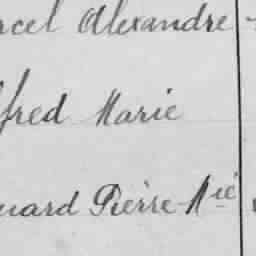 rcel Alexandre
fred Marie
uard Pierre Mie